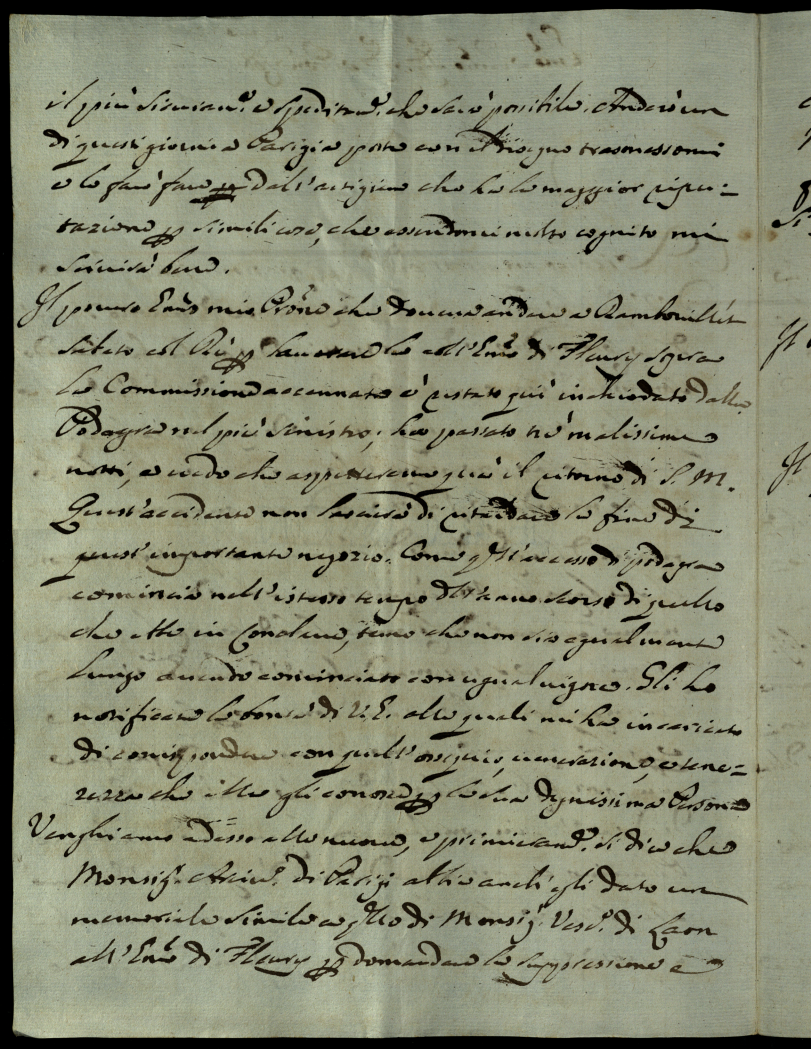 il più sicuram.e e speditam.e che sarà possibile. Anderò un
di questi giorni a Parigi a posta con il disegno trasmessomi
e lo farò fare dall'artigiano che ha la maggior ripu=
tazione p simili cose, che essendomi molto cognito mi
servirà bene.
Il povero Em̃o mio Pr̃one che doveva andare a Rambouillet
sabato col Rè p la all'Em̃o di Fleury sopra
la Commissione accennata è restato qui inchiodato dalla
Podagra nel piè sinistro; ha passato trè malissime
notti, e credo che aspetteremo quà il ritorno di S. M.
Quest'accidente non lascierà di ritardare la fine di
quest'importante negozio. Come q̃st'accesso di podagra
comincia nell'istesso tempo dell'anno scorso di quello
che ebbe in Conclave, temo che non sia egualmente
lungo avendo cominciato con ugual vigore. Gli ho
notificato le bontà di V. E. alle quali mi ha incaricato
di corrispondere con quell'ossequio, venerazione, e tene=
rezza che ella gli conosce p la sua degnissima Persona
Venghiamo adesso alle nuove, e primieram.e si dice che
Monsig.r Arciv.o di Parigi abbia anch'egli dato un
memoriale simile a q̃llo di Monsig.r Vesc.o di Laon
all'Em̃o di Fleury p domandare la suppressione e